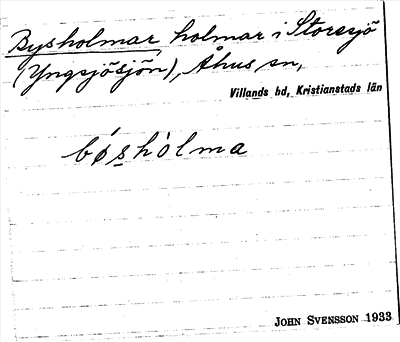 Bysholmar holmar i Storesjö
(Yngsjösjön), Åhus sn,
Villands hd, Kristianstads län
bǿs̱hòlma
JOHN SVENSSON 1933